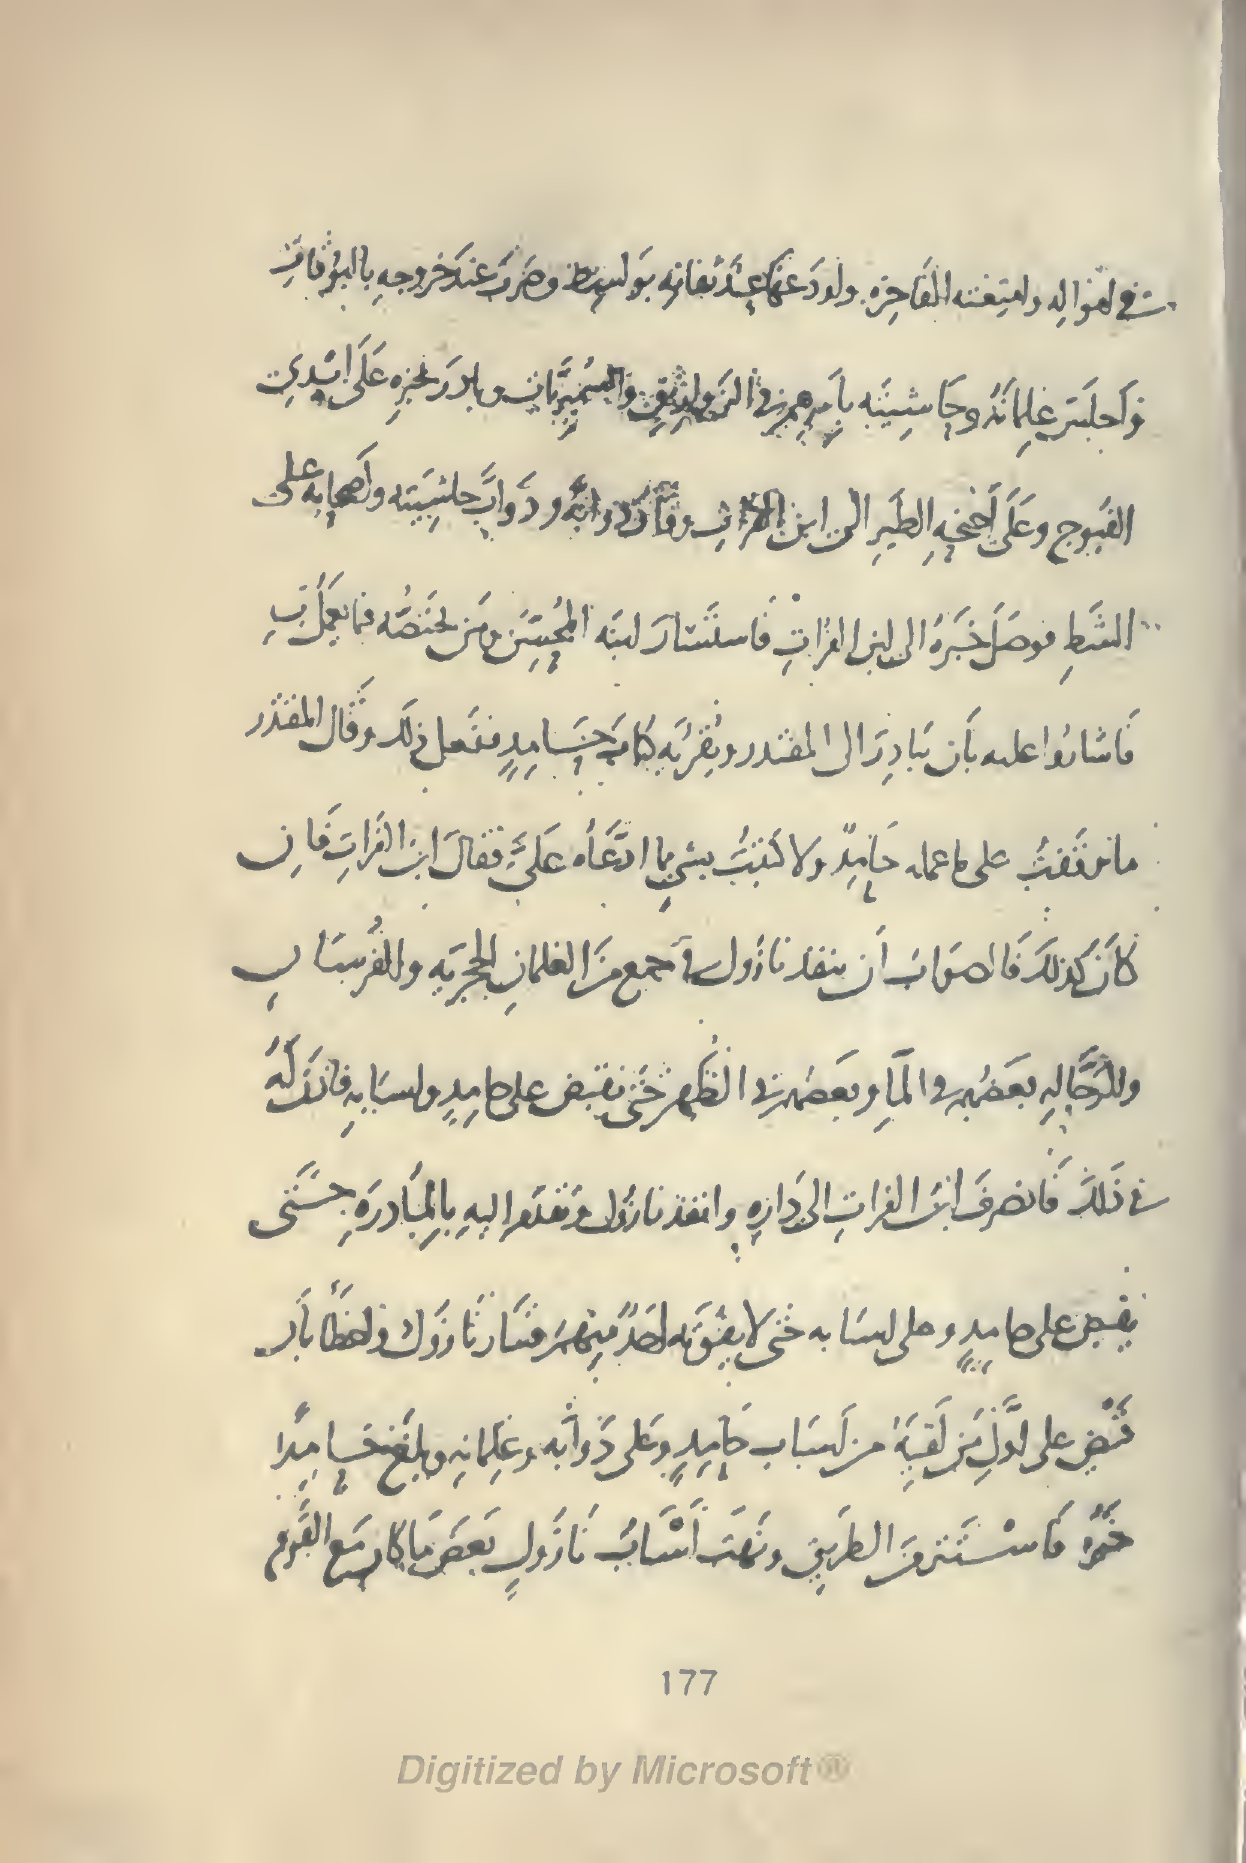 في امواله وامتعته الفاخرة واودعها عند ثقاته بواسط وضرب عند خروجه بالبوقات
واجلس غلمانه وحاشيته باسرهم في والسميريات وبادر بخبره على ايدي
الفيوج وعلى اجنحه الطير الى ابن الفرات وقاد دوابه ودواب حاشيته واصحابه على
الشط فوصل خبره الى ابن الفرات فاستشار ابنه المحسن ومن يختصه فيما يعمل به
فاشاروا عليه بان يبادر الى المقتدر ويقريه كتاب حامد ففعل ذلك وقال المقتدر
ما وقفت على ما عمله حامد ولا كتبت بشي مما ادعاه علي فقال ابن الفرات فان
كان كذلك فالصواب ان ينفذ نازوك في جمع من الغلمان الحجريه والفرسان
والرجاله بعضهم في الما وبعضهم في الظهر حتى نقبض على حامد واسبابه فاذن له
في ذلك فانصرف ابن الفرات الى داره وانفذ نازوك وتقدم اليه بالمبادرة حتى
يقبض على حامد وعلى اسبابه حتى لا يفوته احد منهم فسار نازوك واخطا بان
قبض على اول من لقيه من اسباب حامد وعلى دوابه وغلمانه وبلغ حامدا
خبره فاستتر من الطريق ونهب اسباب نازوك بعض ما كان مع القوم
177
Digitized by Microsoft®